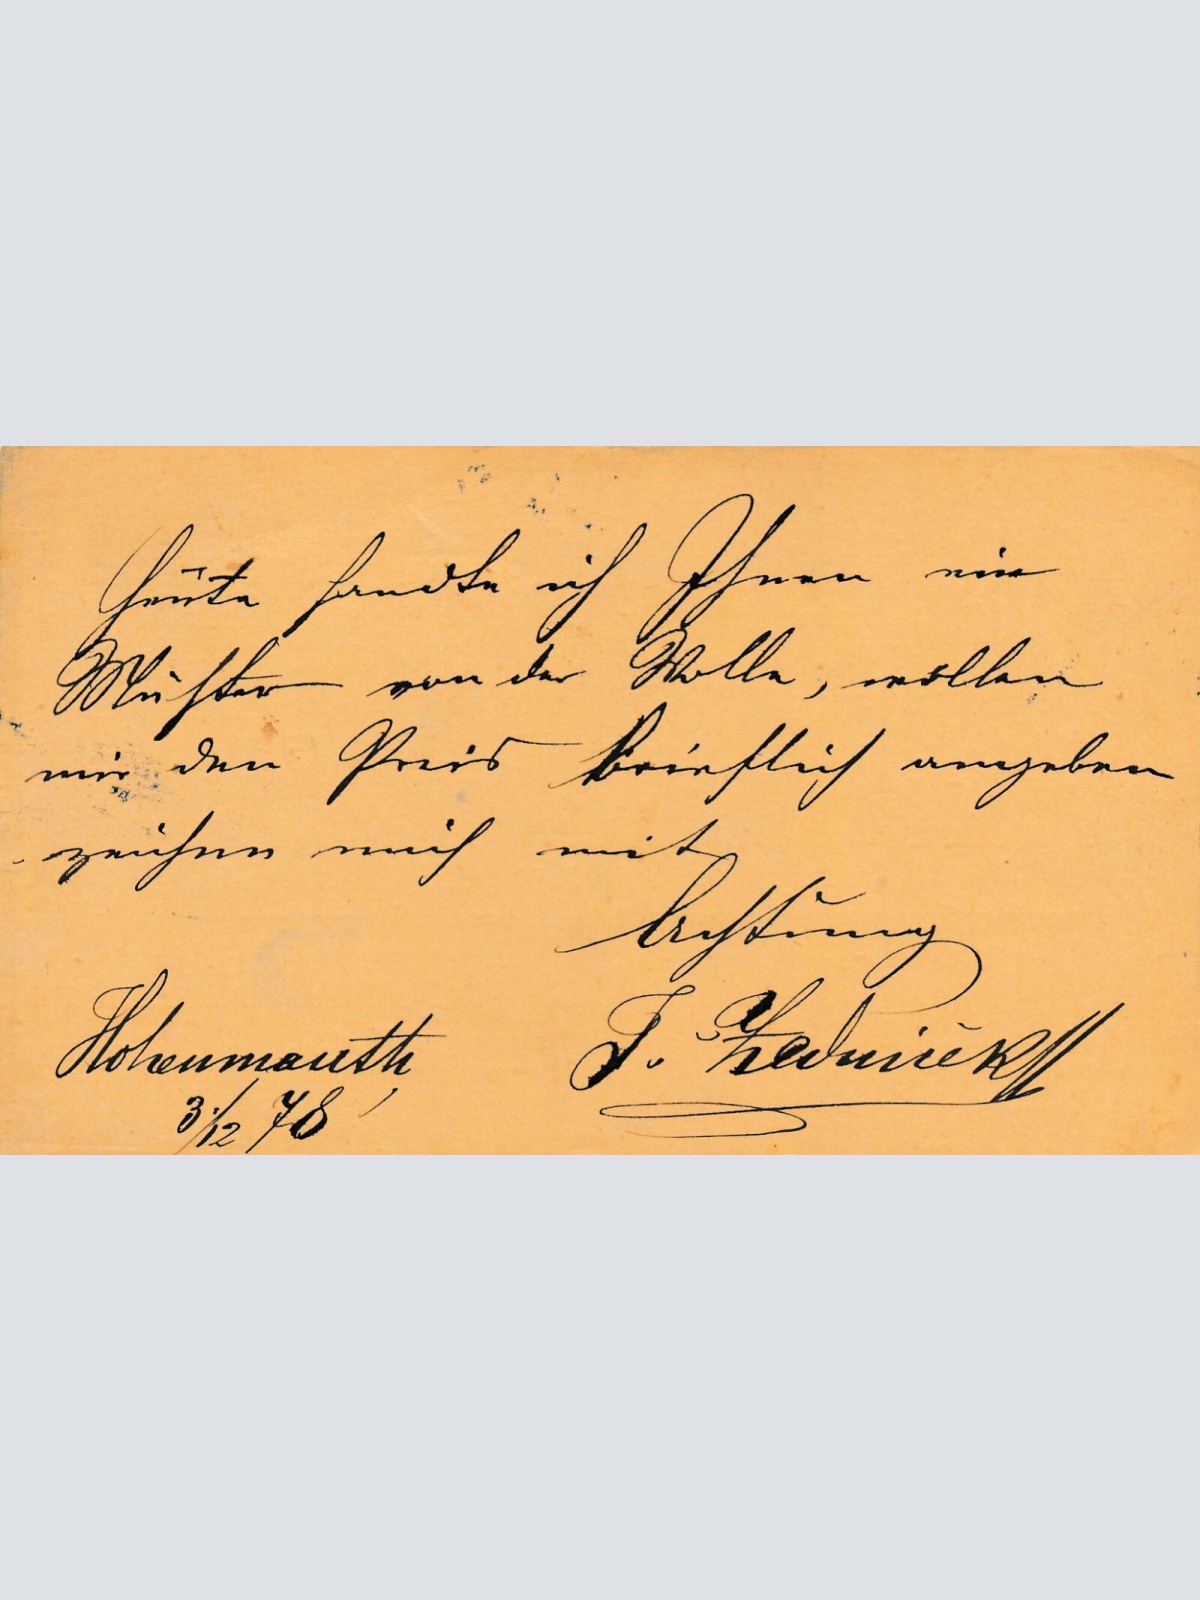 Heute sandte ich Ihnen ein
Muster von der Wolle, wollen
mir den Preis brieflich angeben
zeichne mich mit
Achtung
Hohenmauth
3./12 78
J.